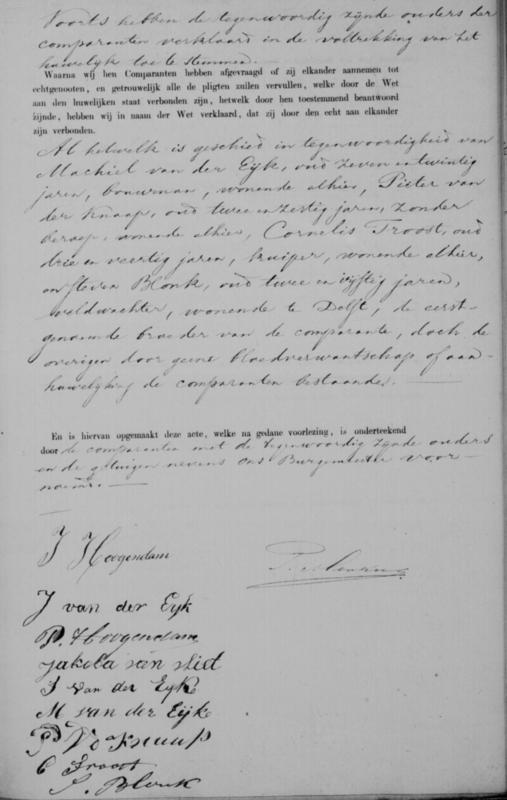 Voorts hebben de tegenwoordig zijnde ouders der
comparanten verklaard in de voltrekking van het
huwelijk toe te stemmen.
Waarna wij hen Comparanten hebben afgevraagd of zij elkander aannemen tot
echtgenooten, en getrouwelijk alle de pligten zullen vervullen, welke door de Wet
aan den huwelijken staat verbonden zijn, hetwelk door hen toestemmend beantwoord
zijnde, hebben wij in naam der Wet verklaard, dat zij door den echt aan elkander
zijn verbonden.
Al hetwelk is geschied in tegenwoordigheid van
Machiel van der Eijk, oud zeven en twintig
jaren, bouwman, wonende alhier, Pieter van
der Knaap, oud twee en zestig jaren, zonder
beroep, wonende alhier, Cornelis Troost, oud
drie en veertig jaren, kuiper, wonende alhier,
en Steven Blonk, oud twee en vijftig jaren,
veldwachter, wonende te Delft, de eerst-
genoemde broeder van de comparante, doch de
overigen door geene bloedverwantschap of aan-
huwelijking de comparanten bestaande.
En is hiervan opgemaakt deze acte, welke na gedane voorlezing, is onderteekend
door de comparanten met de tegenwoordig zijnde ouders
en de getuigen nevens ons Burgemeester voor-
noemd.
J Hoogendam
J van der Eyk
P. Hoogendam
Jakoba van vliet
J van der Eyk
M van der Eijke
P Vd Knaap
C Troost
S. Blonk